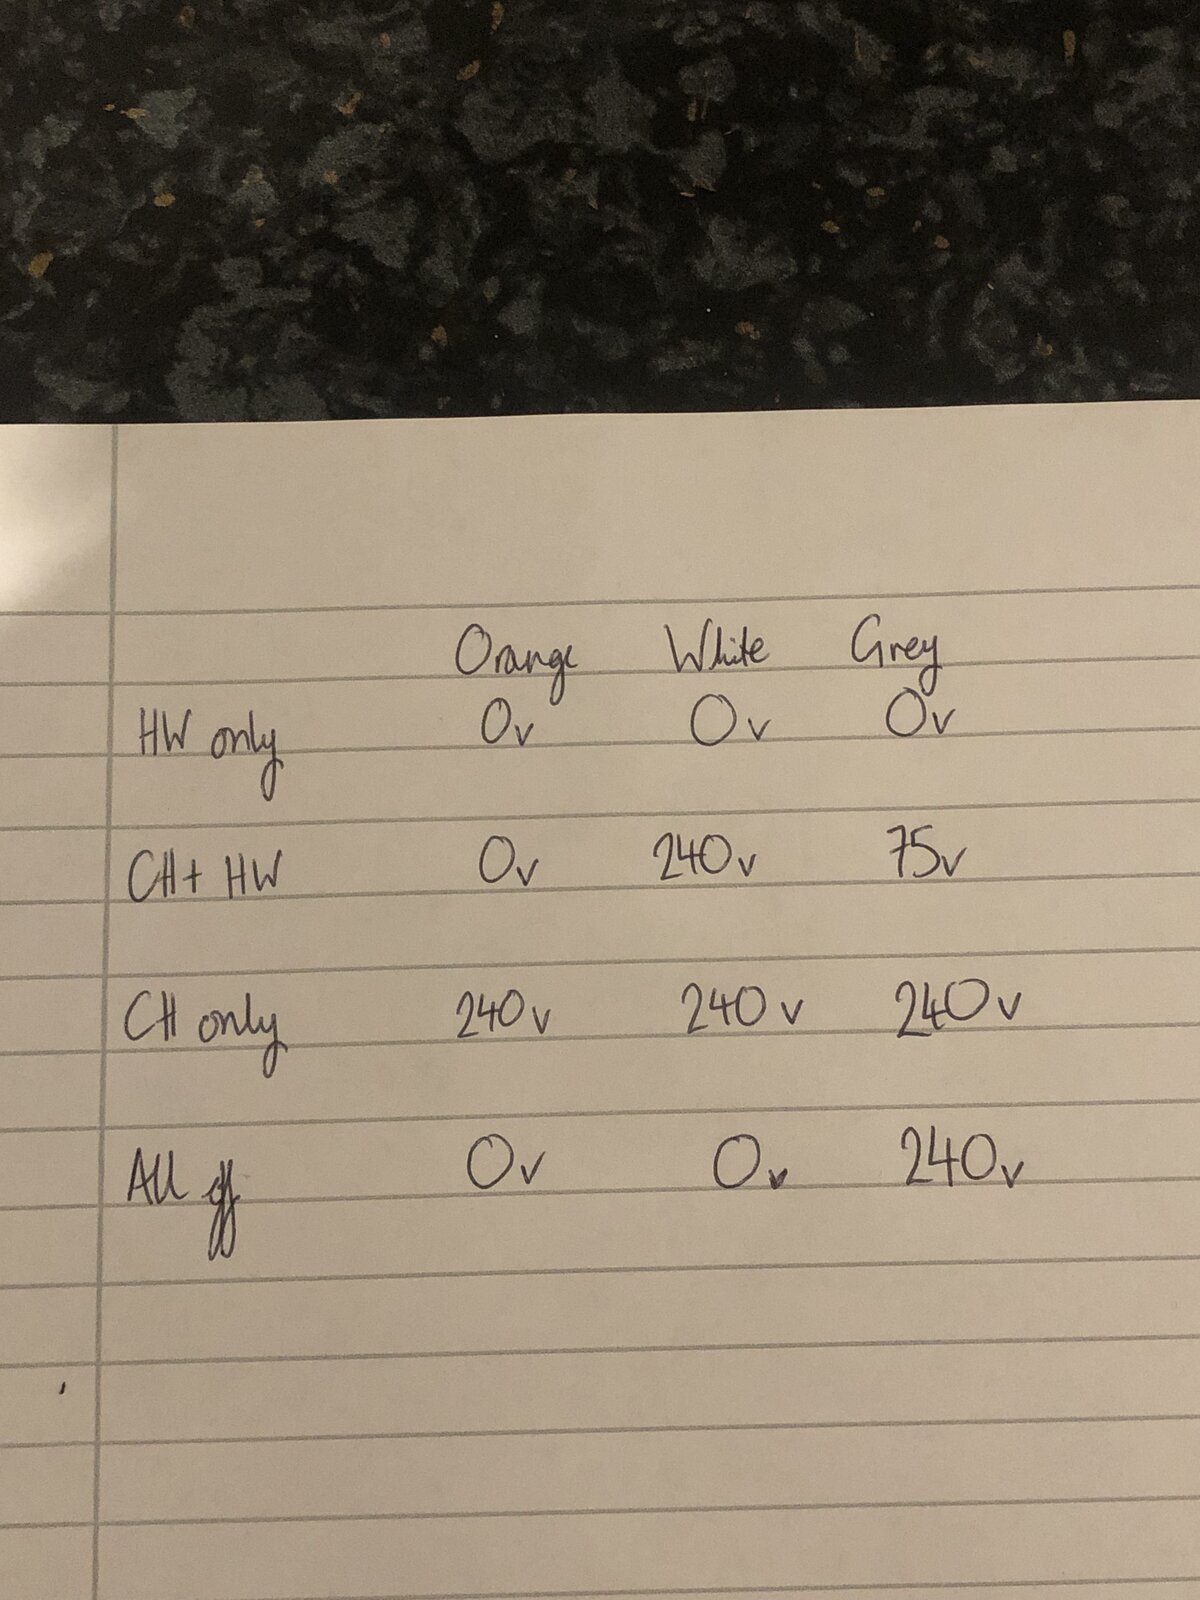 Orange White Grey
HW only 0v 0v 0v
CH + HW 0v 240v 75v
CH only 240v 240v 240v
All off 0v 0v 240v